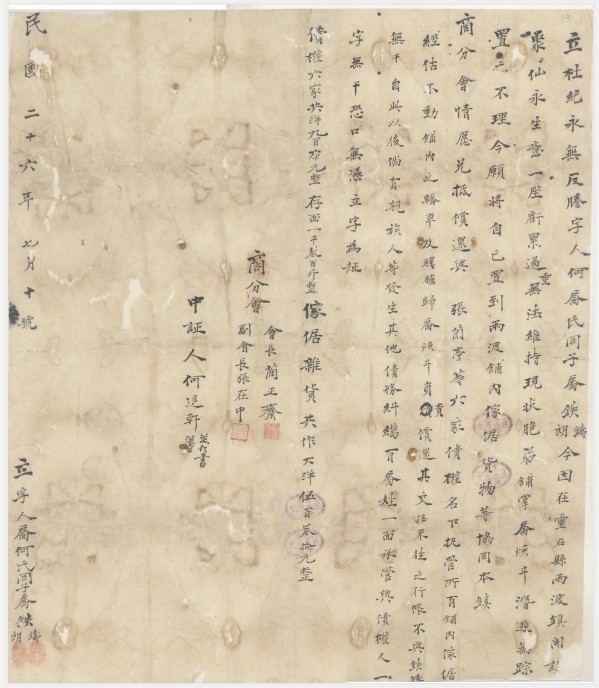 立杜絶永無反謄字人何喬氏同子喬鉄鑄朗今因在靈石縣兩渡鎮開設
聚仙永生意一座虧累過重無法維持現状胞弟鋪掌喬煥斗潛逃無踪
置之不理今願将自己置到兩渡鋪内傢俱貨物等協同本鎮
商分會情愿兑抵償還與張蘭亭等六家債權名下執管所有鋪内傢俱
經估不動鋪内之轎車及賤賬歸喬煥斗負責償還其交接来往之行帳不與鉄鑄
無干自此以後倘有親族人等發生其他債務糾纏有喬姓一面承管與債權人一
字無干恐口無憑立字為証
債權六家共洋元整存面一千百斤整傢俱雜貨共作大洋伍百叁拾元整
商分會
會長蘭正齋
副會長張在中
中証人何退軒並代書
民國二十六年七月十號
立字人喬何氏同子喬鉄鑄朗